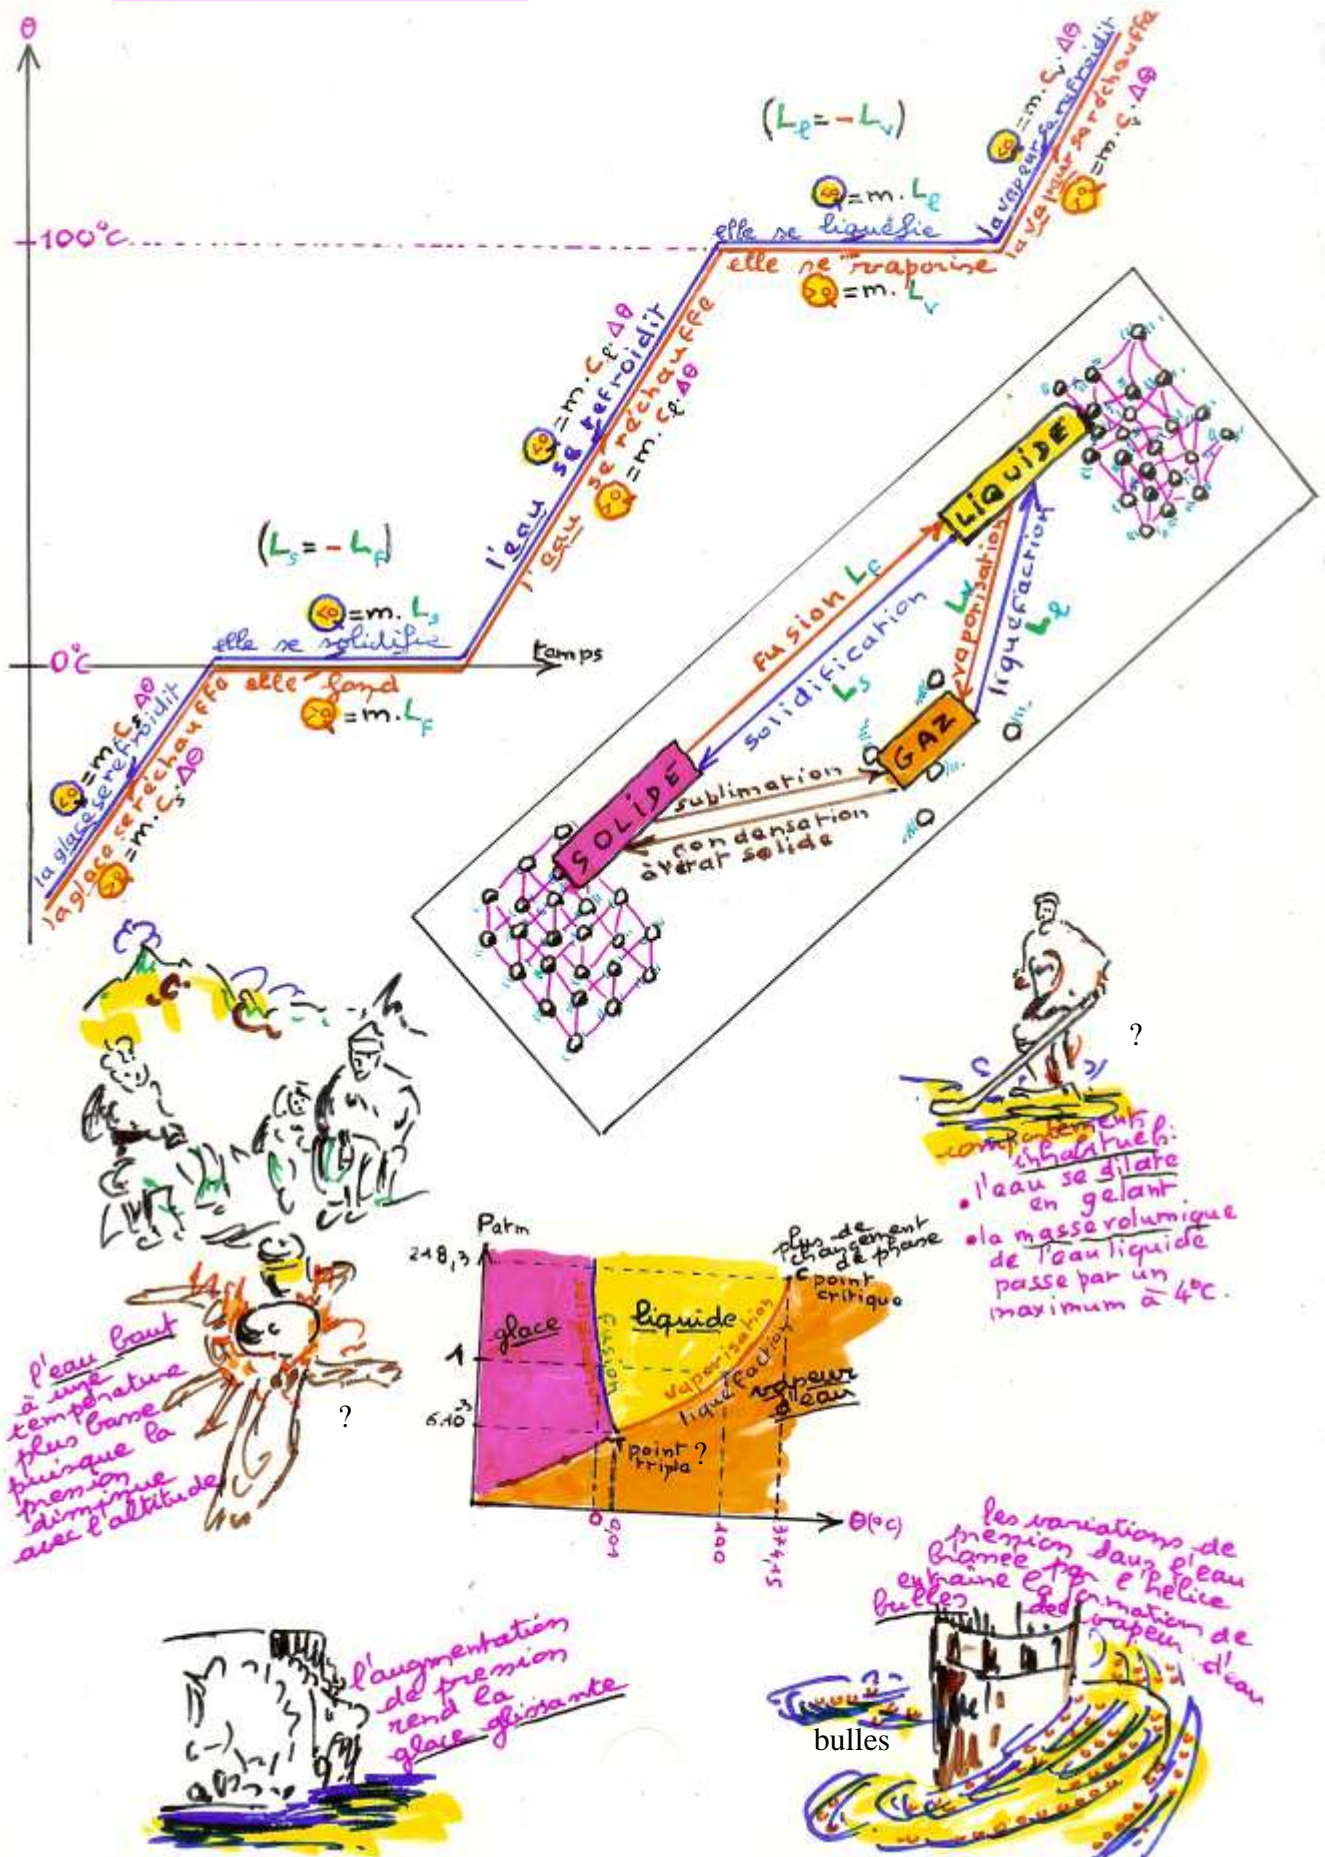 θ
(Lℓ = - Lᵥ)
Q<0 = m. cᵥ. Δθ
la vapeur se refroidit
la vapeur se réchauffe
Q>0 = m. cᵥ. Δθ
Q<0 = m. Lℓ
100°C
elle se liquéfie
elle se vaporise
Q>0 = m. Lᵥ
Q<0 = m. cℓ. Δθ
l'eau se refroidit
l'eau se réchauffe
Q>0 = m. cℓ. Δθ
(Ls = - Lf)
Q<0 = m. Ls
elle se solidifie
0°C
temps
elle fond
Q>0 = m. Lf
Q<0 = m. cs. Δθ
la glace se refroidit
la glace se réchauffe
Q>0 = m. cs. Δθ
LIQUIDE
fusion Lf
solidification
Ls
vaporisation
Lv
liquéfaction
Lℓ
GAZ
SOLIDE
sublimation
condensation
à l'état solide
?
comportements
inhabituels:
• l'eau se dilate
en gelant
• la masse volumique
de l'eau liquide
passe par un
maximum à 4°C.
l'eau bout
à une
température
plus basse
puisque la
pression
diminue
avec l'altitude
?
Patm
218,3
1
6.10⁻³
glace
solidification
fusion
liquide
vaporisation
liquéfaction
vapeur
d'eau
plus de
changement
de phase
C point
critique
T point
triple
?
0
0,01
100
374,15
θ(°C)
l'augmentation
de pression
rend la
glace glissante
les variations de
pression dans l'eau
brassée par l'hélice
entraîne la formation de
bulles de vapeur d'eau
bulles